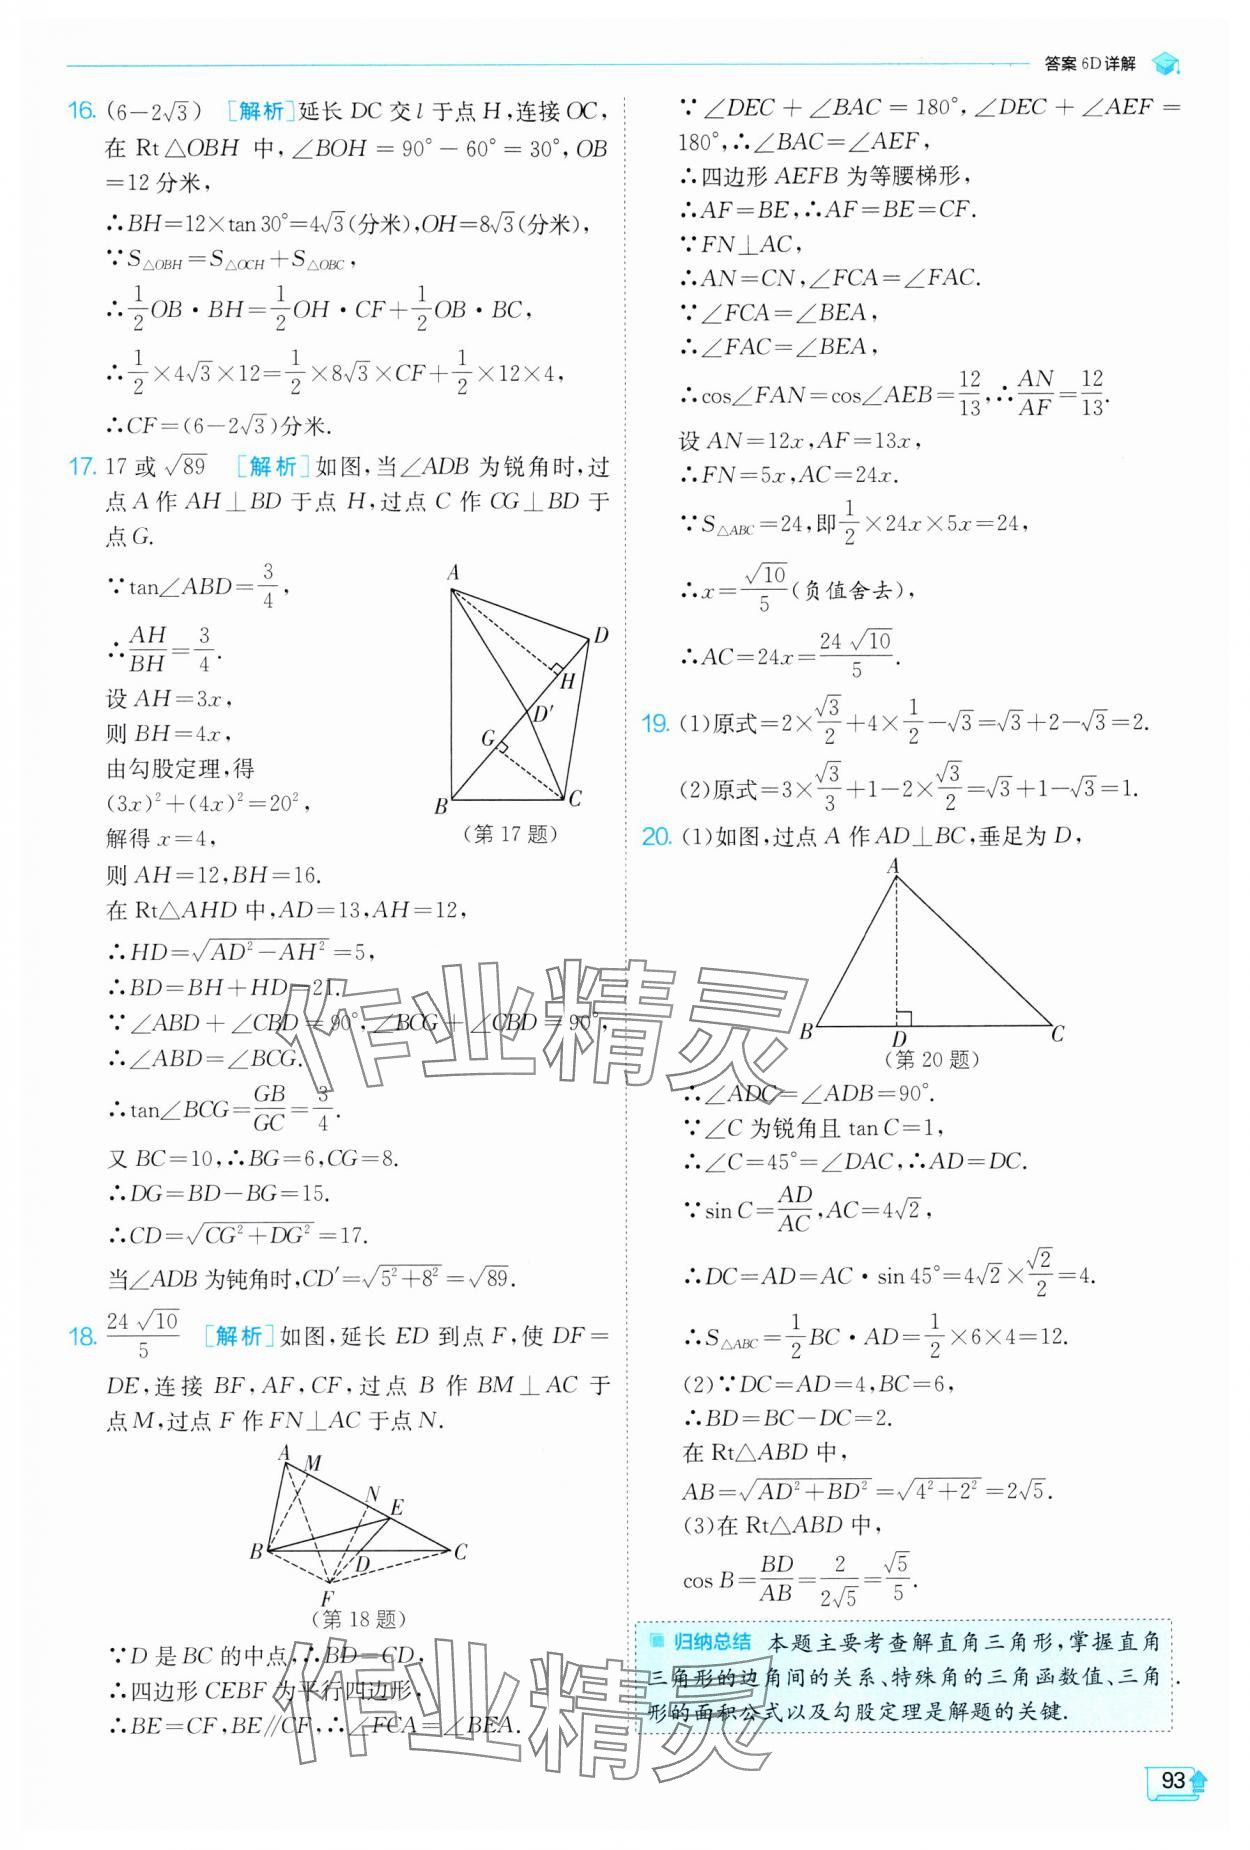 答案 6D 详解
16. (6−2√3) [解析]延长 DC 交 l 于点 H,连接 OC,
在 Rt△OBH 中,∠BOH=90°−60°=30°,OB
=12 分米,
∴BH=12×tan 30°=4√3(分米),OH=8√3(分米),
∵S△OBH=S△OCH+S△OBC,
∴1/2 OB·BH=1/2 OH·CF+1/2 OB·BC,
∴1/2×4√3×12=1/2×8√3×CF+1/2×12×4,
∴CF=(6−2√3)分米.
17. 17 或 √89 [解析]如图,当∠ADB 为锐角时,过
点 A 作 AH⊥BD 于点 H,过点 C 作 CG⊥BD 于
点 G.
∵tan∠ABD=3/4,
∴AH/BH=3/4.
设 AH=3x,
则 BH=4x,
由勾股定理,得
(3x)²+(4x)²=20²,
解得 x=4,
则 AH=12,BH=16.
A
D
H
D′
G
B
C
(第 17 题)
在 Rt△AHD 中,AD=13,AH=12,
∴HD=√(AD²−AH²)=5,
∴BD=BH+HD=21.
∵∠ABD+∠CBD=90°,∠BCG+∠CBD=90°,
∴∠ABD=∠BCG.
∴tan∠BCG=GB/GC=3/4.
又 BC=10,∴BG=6,CG=8.
∴DG=BD−BG=15.
∴CD=√(CG²+DG²)=17.
当∠ADB 为钝角时,CD′=√(5²+8²)=√89.
18. 24√10/5 [解析]如图,延长 ED 到点 F,使 DF=
DE,连接 BF,AF,CF,过点 B 作 BM⊥AC 于
点 M,过点 F 作 FN⊥AC 于点 N.
A
M
N
E
B
D
C
F
(第 18 题)
∵D 是 BC 的中点,∴BD=CD,
∴四边形 CEBF 为平行四边形,
∴BE=CF,BE∥CF,∴∠FCA=∠BEA.
∵∠DEC+∠BAC=180°,∠DEC+∠AEF=
180°,∴∠BAC=∠AEF,
∴四边形 AEFB 为等腰梯形,
∴AF=BE,∴AF=BE=CF.
∵FN⊥AC,
∴AN=CN,∠FCA=∠FAC.
∵∠FCA=∠BEA,
∴∠FAC=∠BEA,
∴cos∠FAN=cos∠AEB=12/13,∴AN/AF=12/13.
设 AN=12x,AF=13x,
∴FN=5x,AC=24x.
∵S△ABC=24,即1/2×24x×5x=24,
∴x=√10/5(负值舍去),
∴AC=24x=24√10/5.
19. (1)原式=2×√3/2+4×1/2−√3=√3+2−√3=2.
(2)原式=3×√3/3+1−2×√3/2=√3+1−√3=1.
20. (1)如图,过点 A 作 AD⊥BC,垂足为 D,
A
B
D
C
(第 20 题)
∴∠ADC=∠ADB=90°.
∵∠C 为锐角且 tan C=1,
∴∠C=45°=∠DAC,∴AD=DC.
∵sin C=AD/AC,AC=4√2,
∴DC=AD=AC·sin 45°=4√2×√2/2=4.
∴S△ABC=1/2 BC·AD=1/2×6×4=12.
(2)∵DC=AD=4,BC=6,
∴BD=BC−DC=2.
在 Rt△ABD 中,
AB=√(AD²+BD²)=√(4²+2²)=2√5.
(3)在 Rt△ABD 中,
cos B=BD/AB=2/2√5=√5/5.
归纳总结 本题主要考查解直角三角形,掌握直角
三角形的边角间的关系、特殊角的三角函数值、三角
形的面积公式以及勾股定理是解题的关键.
93
作业精灵
作业精灵